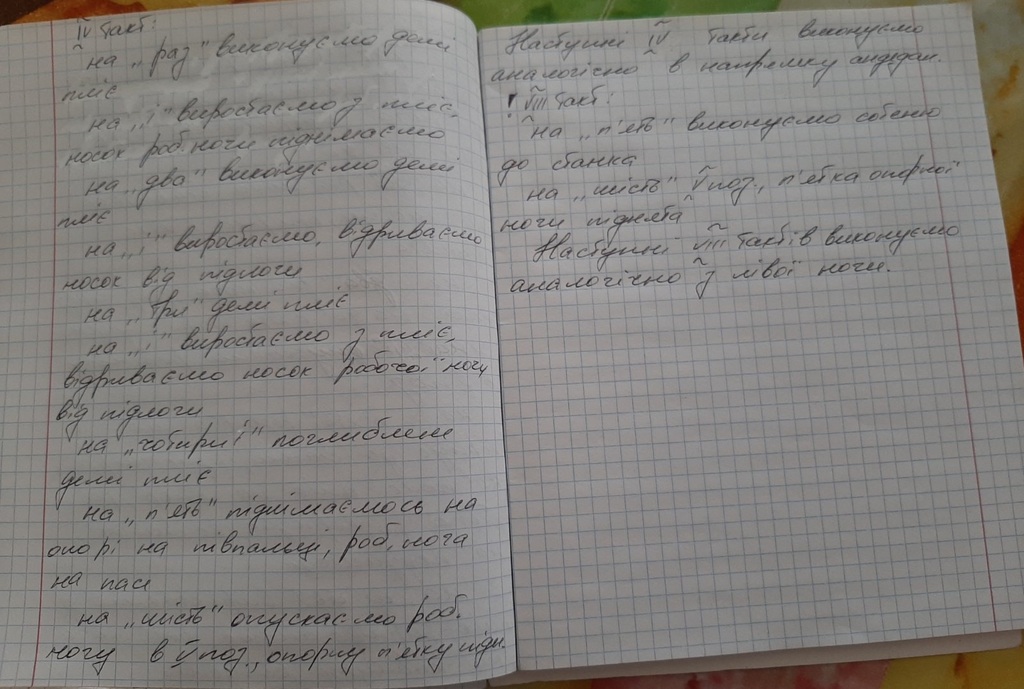 IV такт:
на „раз" виконуємо демі
пліє
на „і" виростаємо з пліє,
носок роб. ноги піднімаємо
на „два" виконуємо демі
пліє
на „і" виростаємо, відриваємо
носок від підлоги
на „три" демі пліє
на „і" виростаємо з пліє,
відриваємо носок робочої ноги
від підлоги
на „чотири і" поглиблене
демі пліє
на „п'ять" піднімаємось на
опорі на півпальці, роб. нога
на пасе
на „шість" опускаємо роб.
ногу в V поз., опорну п'ятку підн.
Наступні IV такти виконуємо
аналогічно в напрямку андедан.
! VIII такт:
на „п'ять" виконуємо сотеню
до станка
на „шість" V поз., п'ятка опорної
ноги піднята
Наступні VIII тактів виконуємо
аналогічно з лівої ноги.